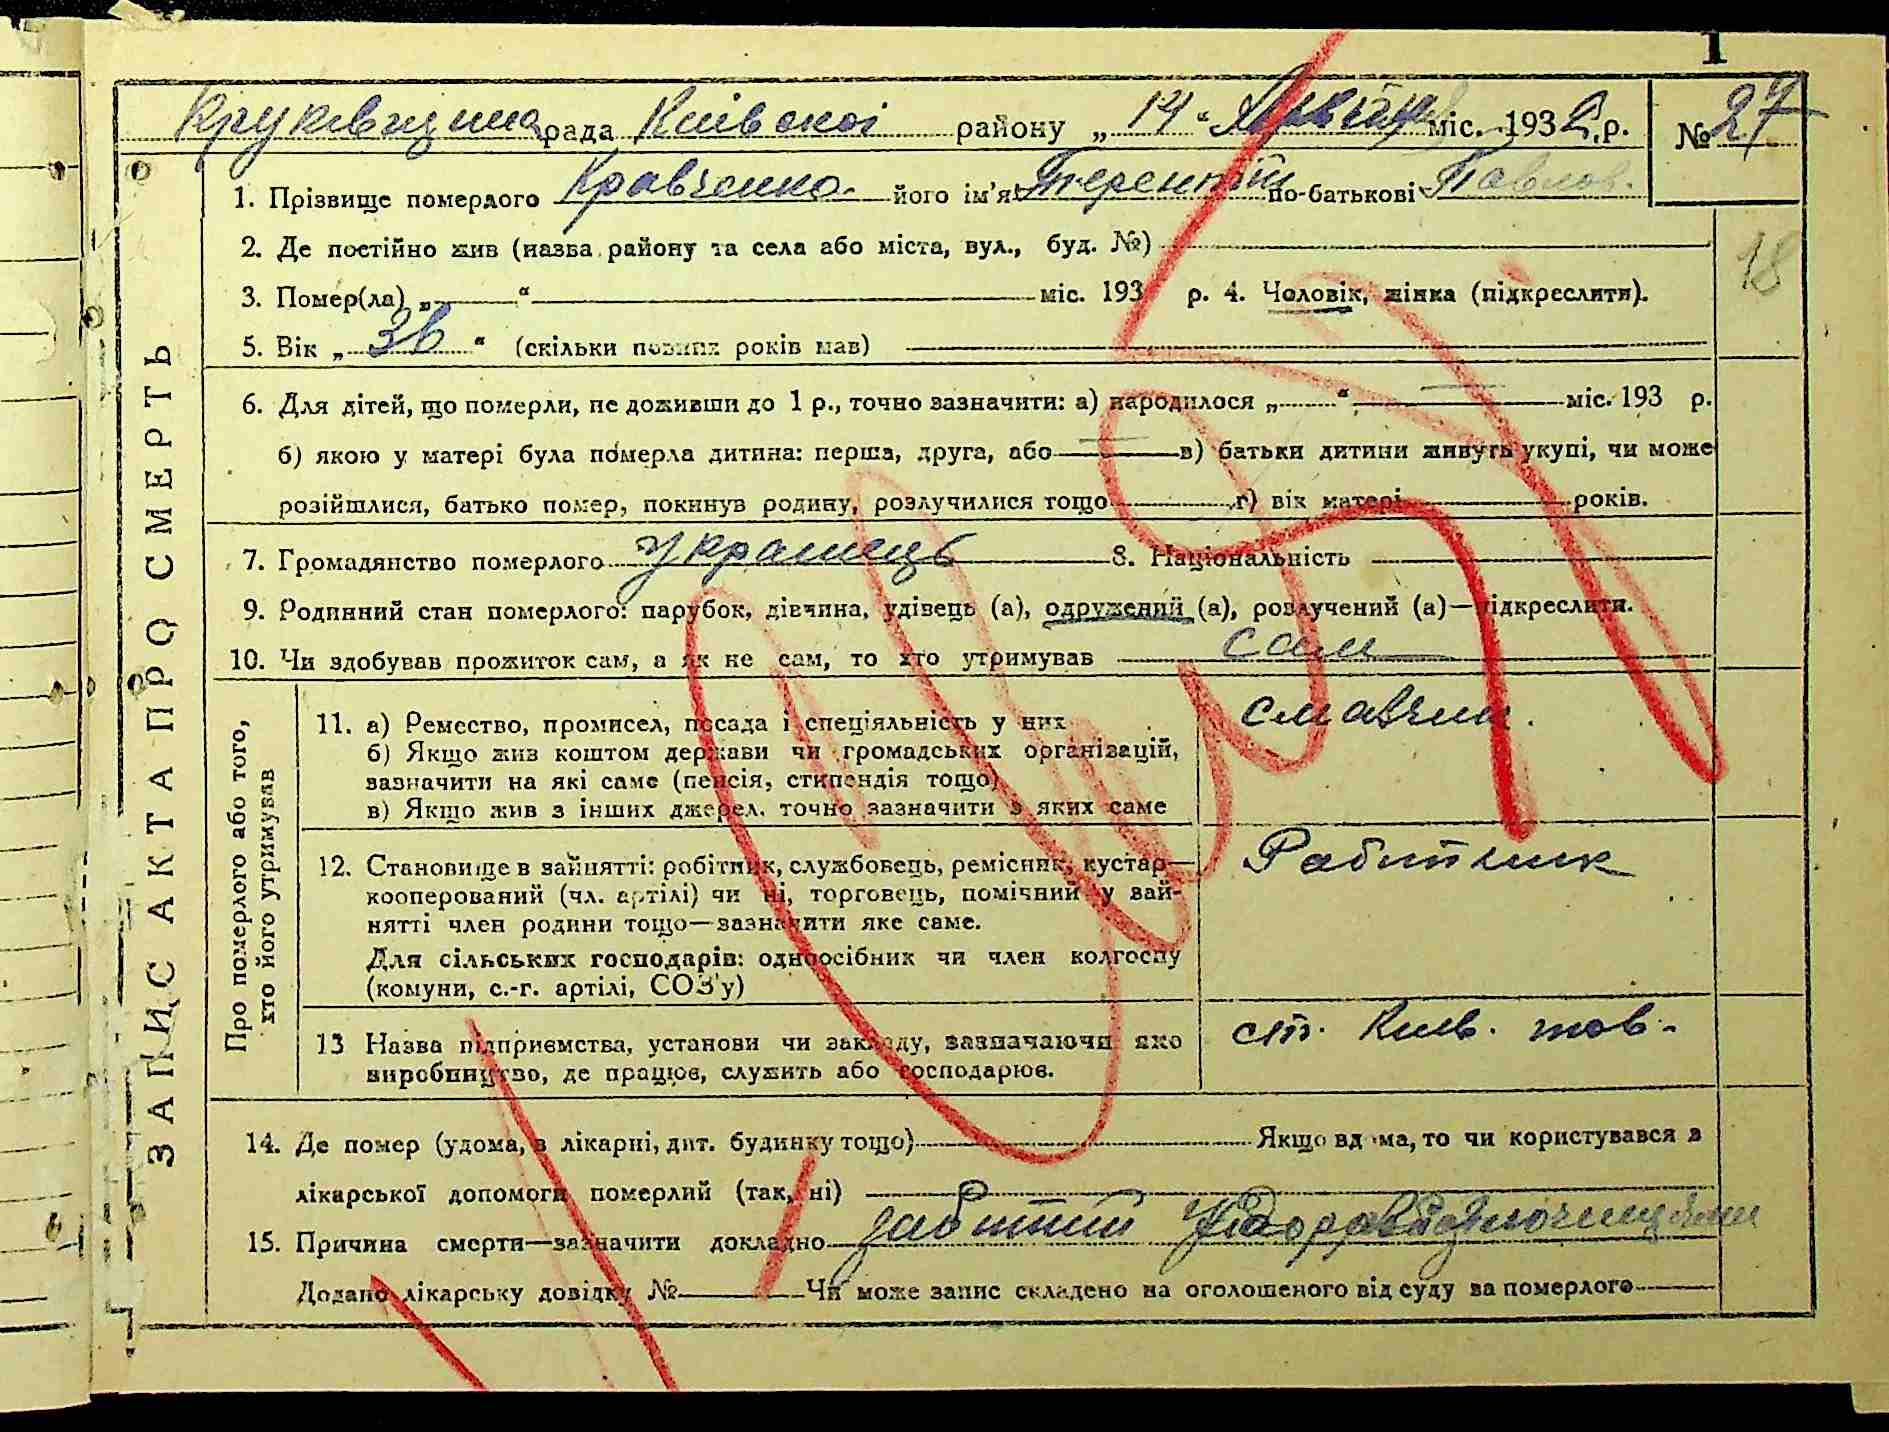 1
Круківщинська рада Київської району „14“ міс. 1932 р. № 27
1. Прізвище померлого Кравченко його ім'я Терентій по-батькові Павлов.
2. Де постійно жив (назва району та села або міста, вул., буд. №)
18
3. Помер(ла) „ “ міс. 193 р. 4. Чоловік, жінка (підкреслити).
5. Вік „36“ (скільки повних років мав)
6. Для дітей, що померли, не доживши до 1 р., точно зазначити: а) народилося „ “ міс. 193 р.
б) якою у матері була померла дитина: перша, друга, або в) батьки дитини живуть укупі, чи може
розійшлися, батько помер, покинув родину, розлучилися тощо г) вік матері років.
7. Громадянство померлого українець 8. Національність
9. Родинний стан померлого: парубок, дівчина, удівець (а), одружений (а), розлучений (а)—підкреслити.
10. Чи здобував прожиток сам, а як не сам, то хто утримував сам
ЗАПИС АКТА ПРО СМЕРТЬ
Про померлого або того,
хто його утримував
11. а) Ремество, промисел, посада і спеціяльність у них смавчик.
б) Якщо жив коштом держави чи громадських організацій,
зазначити на які саме (пенсія, стипендія тощо)
в) Якщо жив з інших джерел, точно зазначити з яких саме
12. Становище в зайнятті: робітник, службовець, ремісник, кустар— Работник
кооперований (чл. артілі) чи ні, торговець, помічний у зай-
нятті член родини тощо—зазначити яке саме.
Для сільських господарів: одноосібник чи член колгоспу
(комуни, с.-г. артілі, СОЗ'у)
13 Назва підприємства, установи чи закладу, зазначаючи яко ст. Київ. тов.
виробництво, де працює, служить або господарює.
14. Де помер (удома, в лікарні, дит. будинку тощо) Якщо вдома, то чи користувався з
лікарської допомоги померлий (так, ні)
15. Причина смерти—зазначити докладно забитий
Додано лікарську довідку № Чи може запис складено на оголошеного від суду за померлого